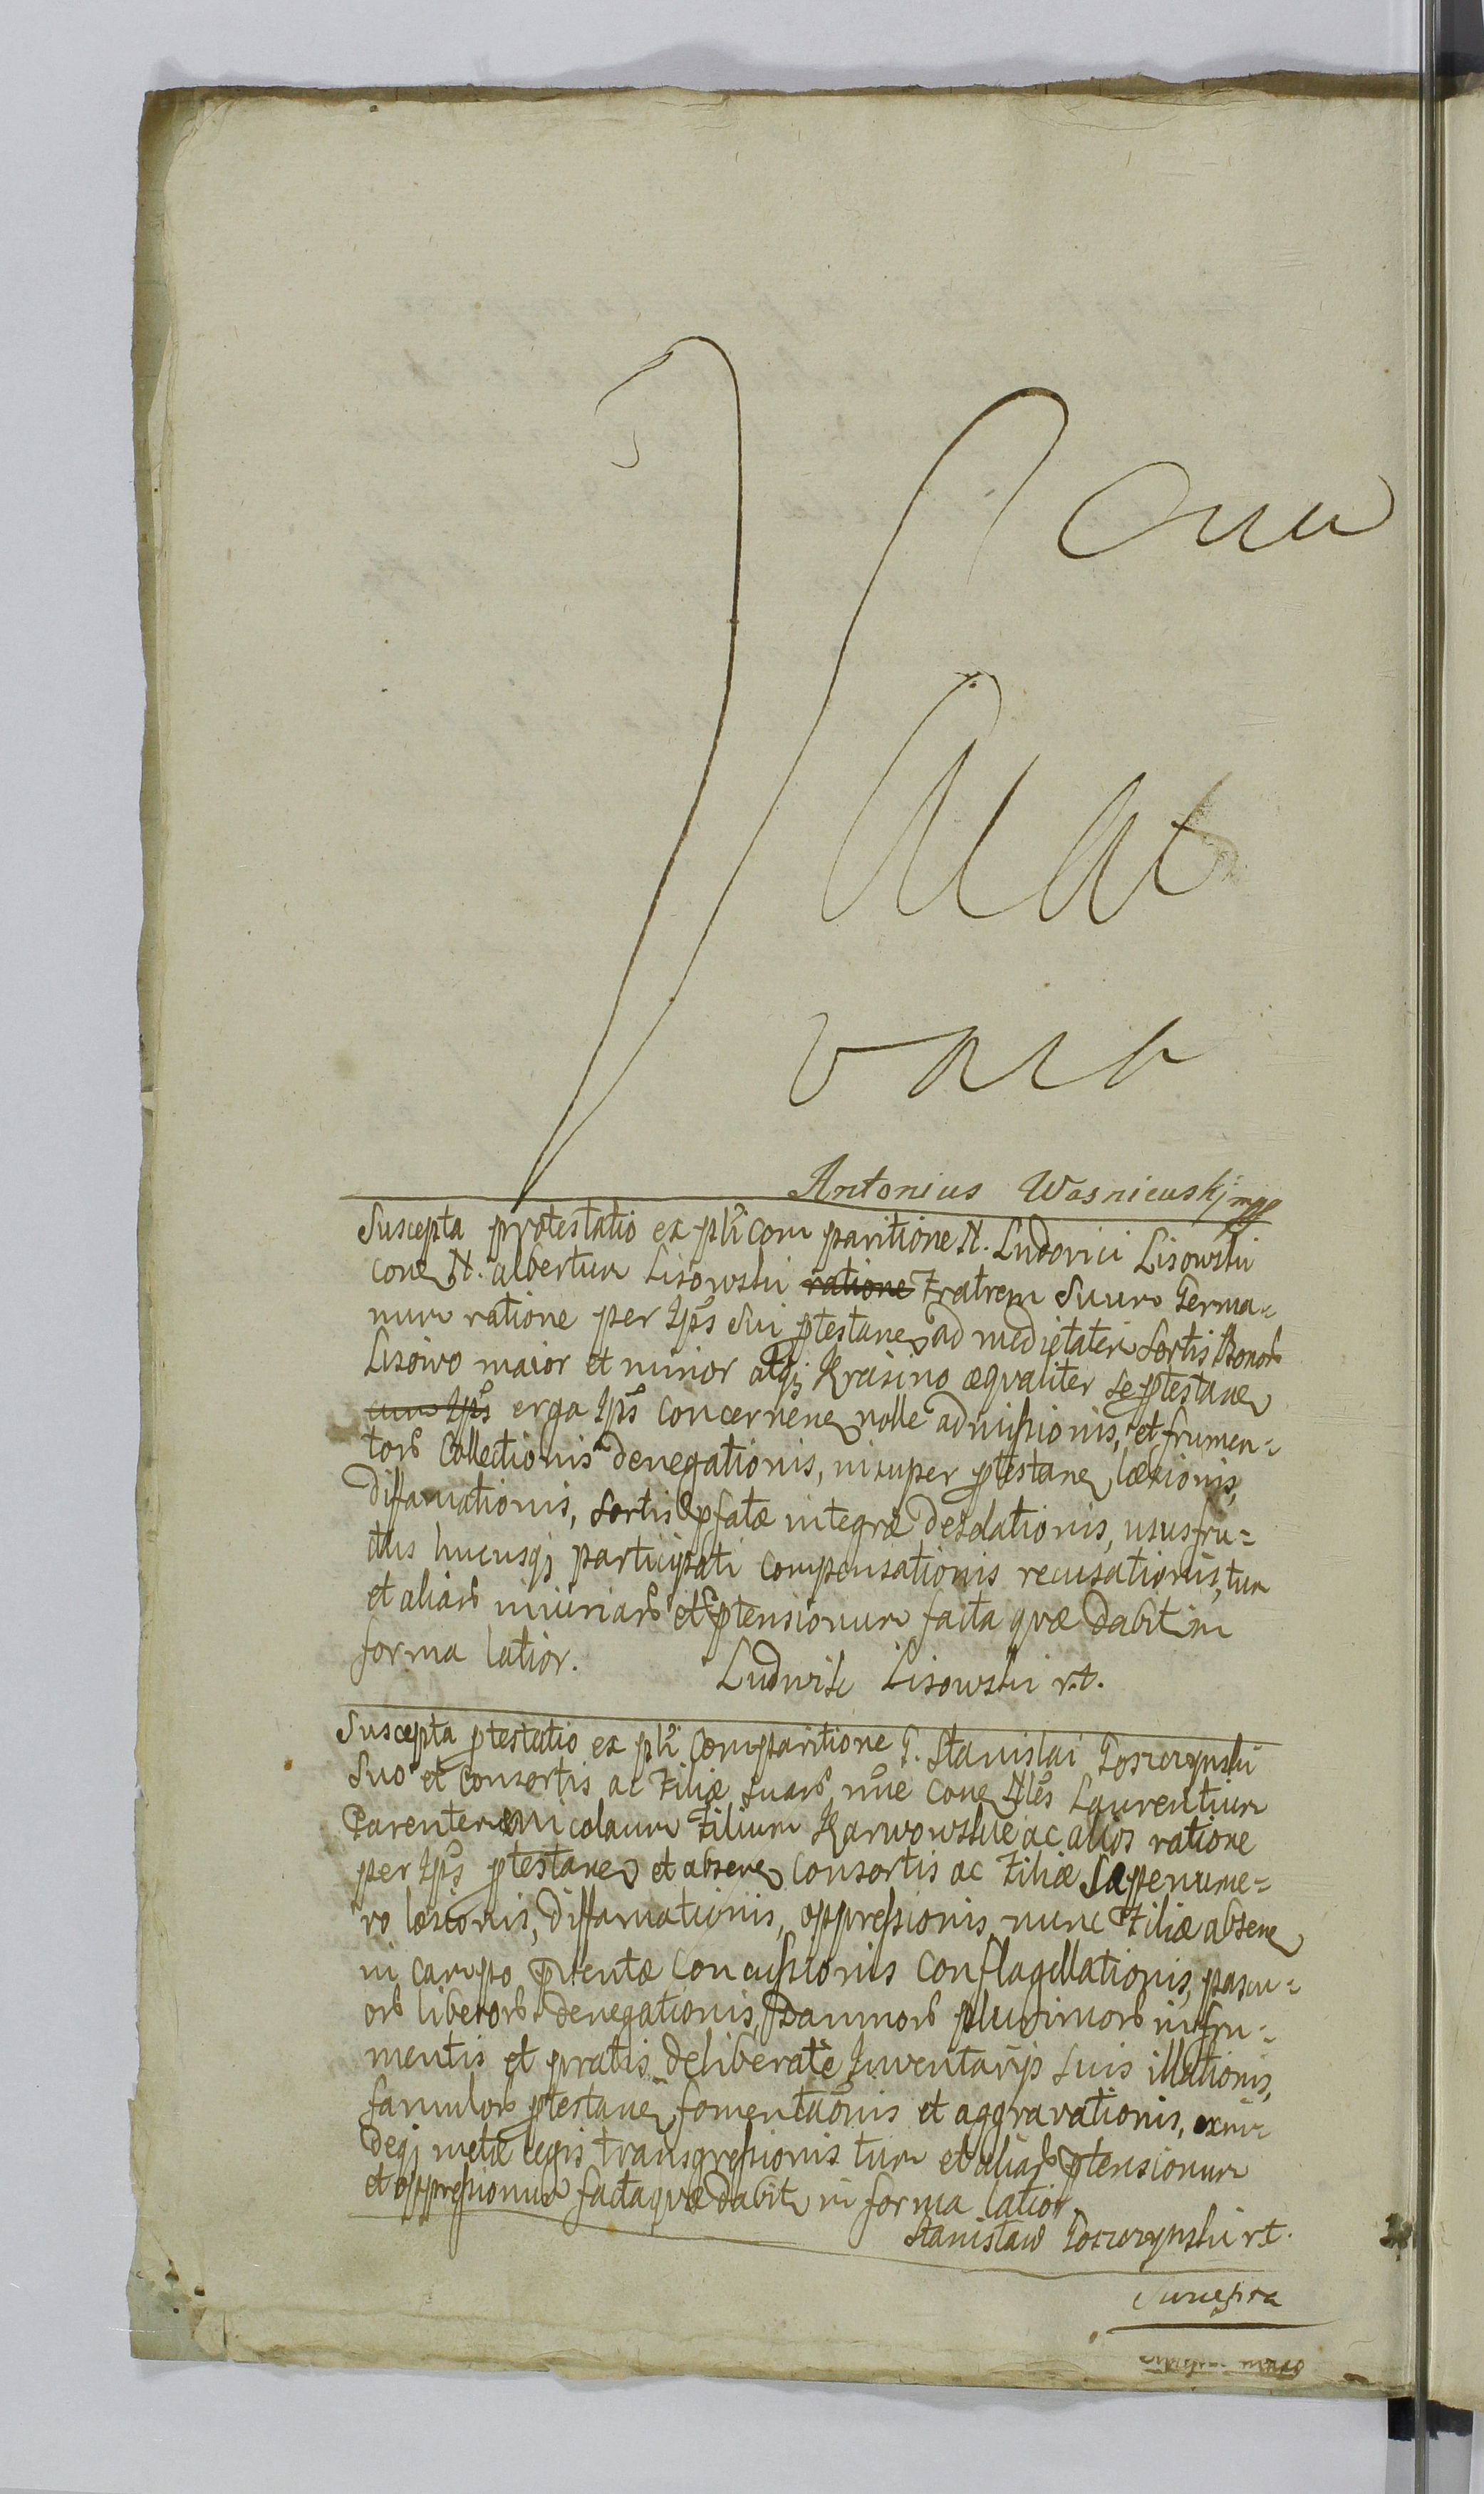 Vacat
Antonius Wasniewskj mpp
Suscepta protestatio ex pñti comparitione N. Ludovici Lisowski
con̄ N. Albertum Lisowski ratione Fratrem Suum Germa=
num ratione per Ips̄ Sui ptestan̄ ad medietatem Sortis Bonor̄
Lisowo maior et minor atq̄ Krasino æqualiter se ptestan̄
cum Ips̄ erga Ips̄ concernen̄ nolle admissionis, et frumen=
tor̄ Collectionis denegationis, insuper ptestan̄ læsionis,
diffamationis, Sortis pfatæ integræ desolationis, ususfru=
ctus hucusq̄ participati compensationis recusationis, tum
et aliar̄ iniuriar̄ et ptensionum facta quæ dabit̄ in
forma latior.
Ludwik Lisowski r.t.
Suscepta ptestatio ex pñti comparitione G. Stanislai Goszczynski
Suo et Consortis ac Filiæ suar̄ nōe con̄ Nl̄es Laurentium
Parentem Nicolaum Filium Karwowskie ac alios ratione
per Ips̄ ptestan̄ et absen̄ Consortis ac Filiæ sæpenume=
ro læsionis, diffamationis, oppressionis, nunc Filiæ absen̄
in campo Concussionis Conflagellationis, pascu=
or̄ liberor̄ denegationis, Damnor̄ plurimor̄ in fru=
mentis et pratis deliberatè Inventarijs suis illationis,
famulor̄ ptestan̄ et aggravationis,
deq̄ metæ legis transgressionis tum et aliar̄ ptensionum
et oppressionum facta quæ dabit̄ in forma latior.
Stanisław Goszczynski r.t.